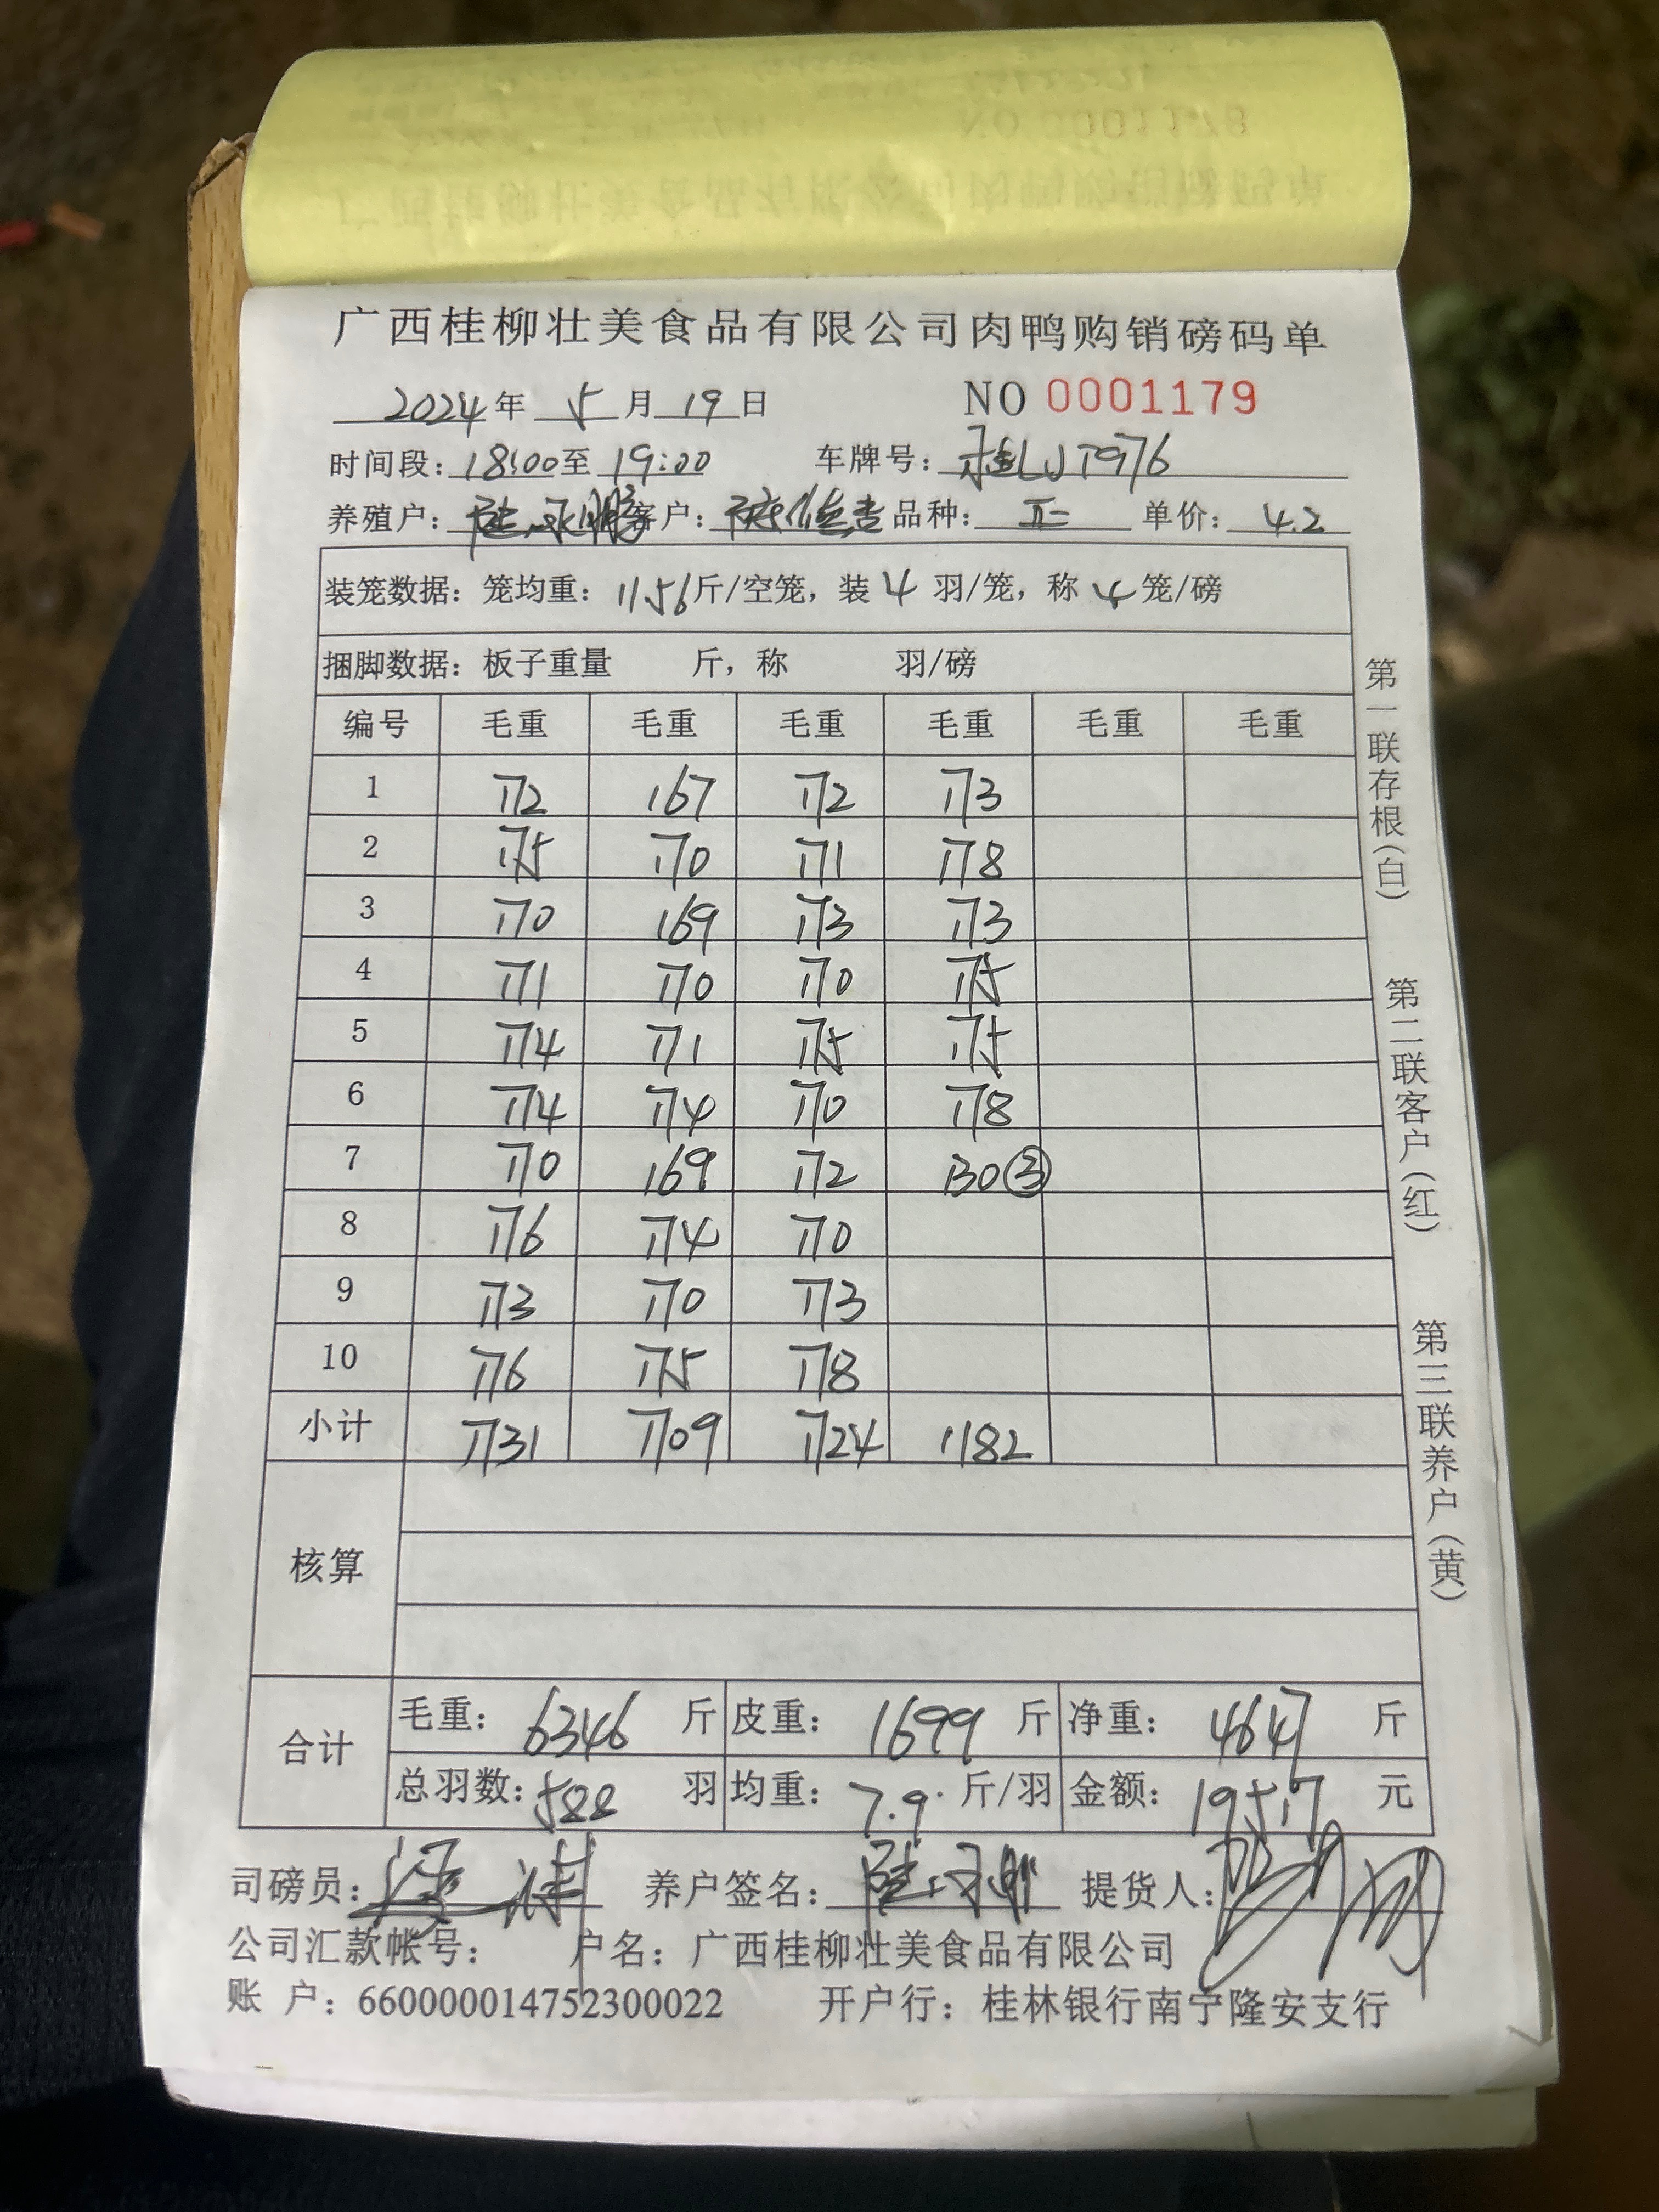 广西桂柳壮美食品有限公司肉鸭购销磅码单
2024年 5月19日 NO 0001179
时间段：18:00至 19:00 车牌号：桂LJT976
养殖户：陆永鹏 客户： 品种： 单价：4.2
装笼数据：笼均重：11.56斤/空笼，装 4 羽/笼，称 4 笼/磅
捆脚数据：板子重量 斤，称 羽/磅
编号 毛重 毛重 毛重 毛重 毛重 毛重
1 172 167 172 173
2 175 170 171 178
3 170 169 173 173
4 171 170 170 175
5 174 171 175 175
6 174 174 170 178
7 170 169 172 130③
8 176 174 170
9 173 170 173
10 176 175 178
小计 1731 1709 1724 1182
核算
合计
毛重：6346 斤 皮重：1699 斤 净重：4647 斤
总羽数：588 羽 均重：7.9 斤/羽 金额：19517 元
司磅员： 养户签名：陆永鹏 提货人：
公司汇款帐号： 户名：广西桂柳壮美食品有限公司
账 户：660000014752300022 开户行：桂林银行南宁隆安支行
第一联存根（白）
第二联客户（红）
第三联养户（黄）